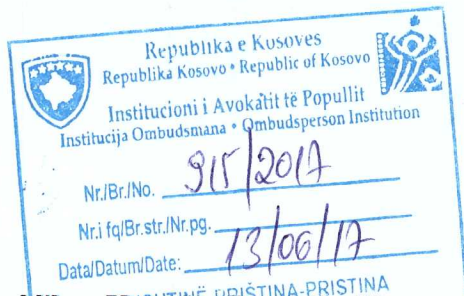 Republika e Kosovës
Republika Kosovo • Republic of Kosovo
Institucioni i Avokatit të Popullit
Institucija Ombudsmana • Ombudsperson Institution
Nr./Br./No. 915/2017
Nr.i fq/Br.str./Nr.pg.
Data/Datum/Date: 13/06/17
PRIŠTINA-PRISTINA